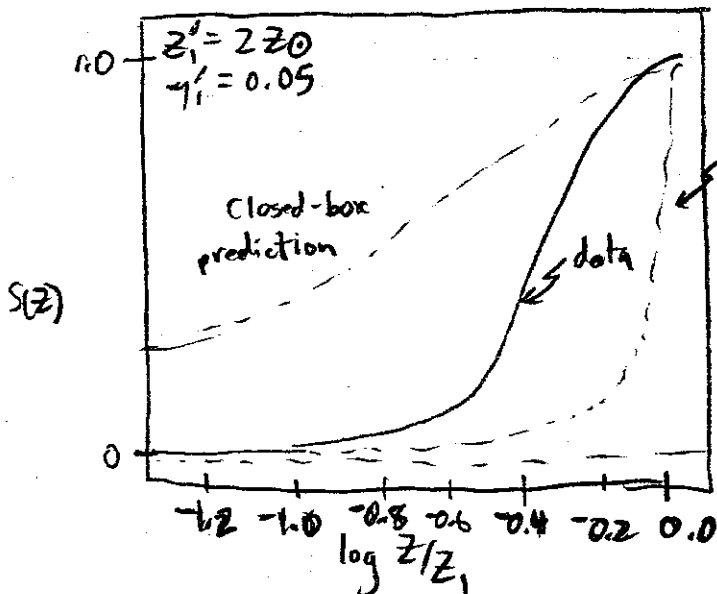 Z₁' = 2 Z⊙
1.0
η₁' = 0.05
Closed-box
prediction
data
S(Z)
0
-1.2 -1.0 -0.8 -0.6 -0.4 -0.2 0.0
log Z/Z₁